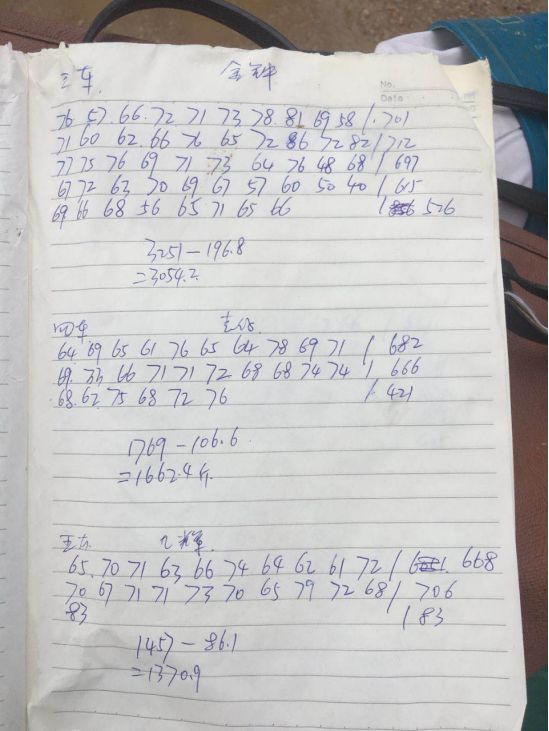 三车 金钟
No.
Date
76 57. 66. 72 71 73 78. 81 69 58 / 701
71 60 62. 66 76 65 72 86 72 82 / 712
77 75 76 69 71 73 64 76 48 68 / 697
67 72 63 70 69 67 57 60 50 40 / 615
69 66 68 56 65 71 65 66 / 526
3251 - 196.8
=3054.2
四车
64 69 65 61 76 65 64 78 69 71 / 682
69. 33 66 71 71 72 68 68 74 74 / 666
68. 62. 75 68 72 76 / 421
1769 - 106.6
=1662.4斤.
65. 70 71 63 66 74 64 62 61 72 / 668
70 67 71 71 73 70 65 79 72 68 / 706
83 / 83
1457 - 86.1
=1370.9